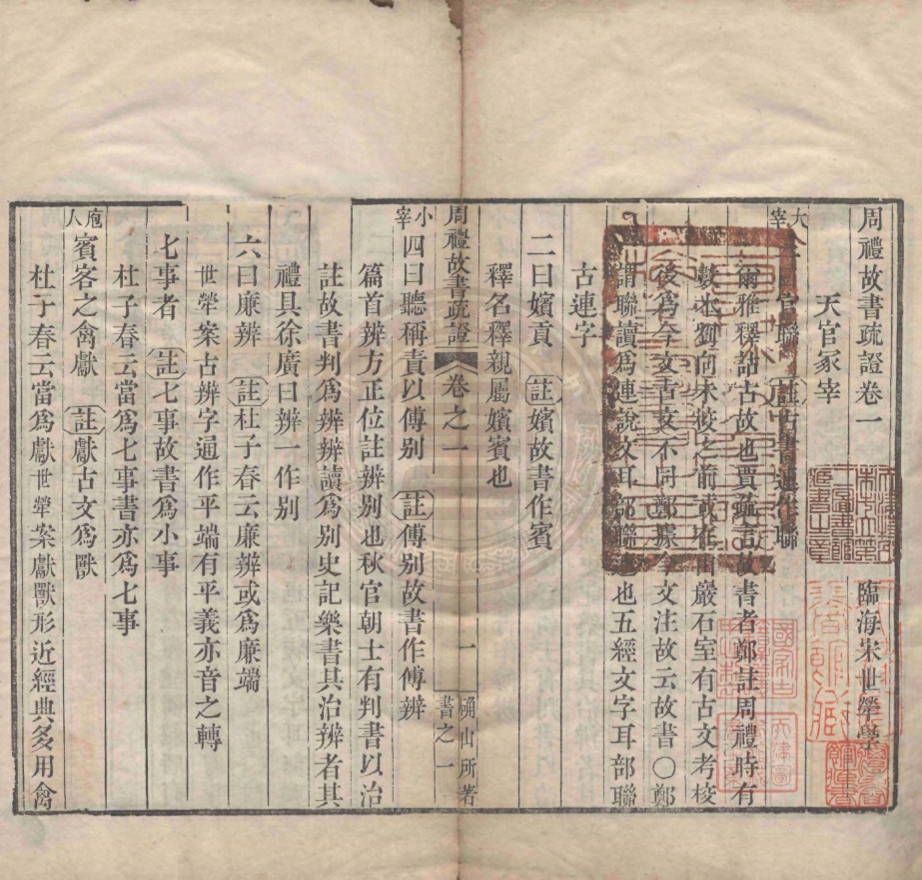 周禮故書疏證卷一
臨海宋世犖學
天官冢宰
大宰
官聯 註古書連作聯
爾雅釋詁古故也賈疏言故書者鄭註周禮時有
數本劉向未校之前或在山巖石室有古文考校
後爲今文古文不同鄭據今文注故云故書〇鄭
謂聯讀爲連說文耳部聯連也五經文字耳部聯
古連字
二曰嬪貢 註嬪故書作賓
釋名釋親屬嬪賓也
周禮故書疏證 卷之一 一 确山所著書之一
小宰
四曰聽稱責以傅别 註傅别故書作傅辨
篇首辨方正位註辨别也秋官朝士有判書以治
註故書判爲辨辨讀爲别史記樂書其治辨者其
禮具徐廣曰辨一作别
六曰廉辨 註杜子春云廉辨或爲廉端
世犖案古辨字通作平端有平義亦音之轉
七事者 註七事故書爲小事
杜子春云當爲七事書亦爲七事
庖人
賓客之禽獻 註獻古文爲獸
杜子春云當爲獻世犖案獻獸形近經典多用禽